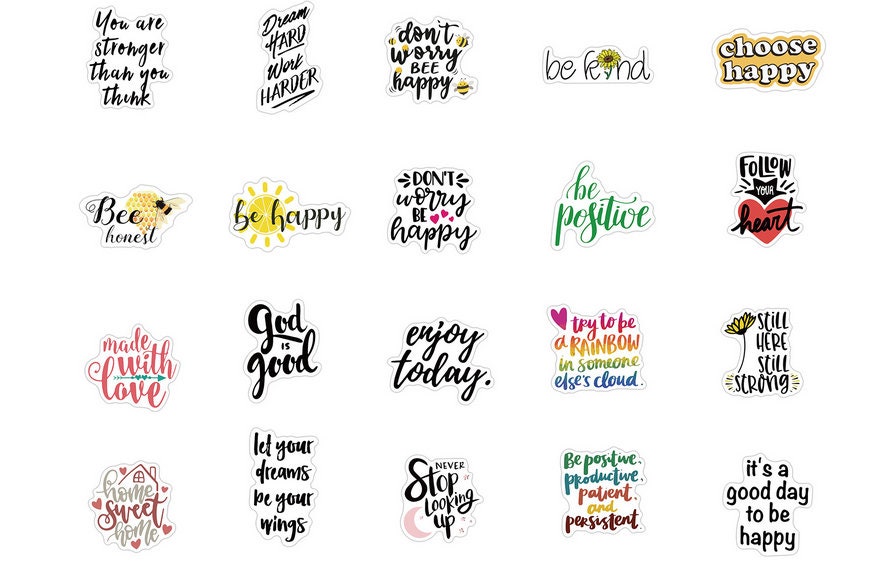 You are
stronger
than you
think
Dream
HARD
Work
HARDER
don't
worry
BEE
happy
be kind
choose
happy
Bee
honest
be happy
DON'T
worry
BE
happy
be
positive
FOLLOW
YOUR
heart
made
with
love
God
IS
good
enjoy
today.
try to be
a RAINBOW
in someone
else's cloud.
STILL
HERE
STILL
STRONG
home
sweet
home
let your
dreams
be your
wings
NEVER
STOP
LOOKING
UP
Be positive,
productive,
patient,
and
persistent.
it's a
good day
to be
happy